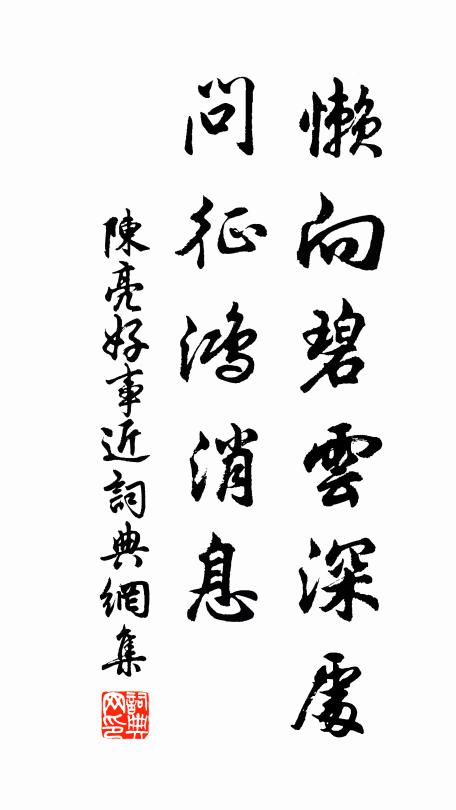 懶向碧雲深處
問征鴻消息
陳亮好事近詞典網集
詞典网印